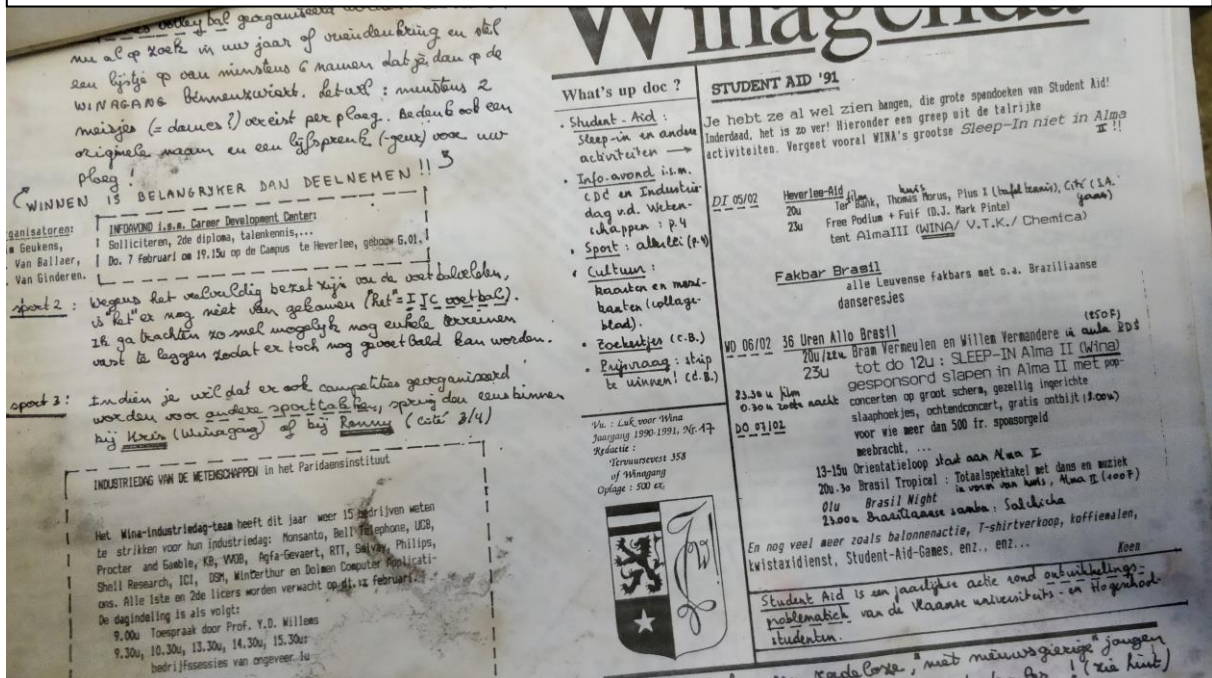 volleybal georganiseerd
nu al op zoek in uw jaar of vriendenkring en stel
een lijstje op van minstens 6 namen dat je dan op de
WINAGANG binnenzwiert. Let wel : minstens 2
meisjes (= dames ?) vereist per ploeg.. Bedenk ook een
originele naam en een lijfspreuk (-geur) voor uw
ploeg !
WINNEN IS BELANGRYKER DAN DEELNEMEN !!
ganisatoren:
Geukens,
Van Ballaer,
Van Ginderen.
INFOAVOND i.s.m. Career Development Center:
Solliciteren, 2de diploma, talenkennis,...
Do. 7 februari om 19.15u op de Campus te Heverlee, gebouw G.01.
sport 2 : Wegens het veelvuldig bezet zijn van de voetbalvelden,
is "het" er nog niet van gekomen ("het" = IJC voetbal).
Ik ga trachten zo snel mogelijk nog enkele terreinen
vast te leggen zodat er toch nog gevoetbald kan worden.
sport 3 : Indien je wil dat er ook competities georganiseerd
worden voor andere sporttakken, spring dan eens binnen
bij Kris (Winagang) of bij Ronny (Cité 3/4)
INDUSTRIEDAG VAN DE WETENSCHAPPEN in het Paridaensinstituut
Het Wina-industriedag-team heeft dit jaar weer 15 bedrijven weten
te strikken voor hun industriedag: Monsanto, Bell Telephone, UCB,
Procter and Gamble, KB, VVOB, Agfa-Gevaert, RTT, Solvay, Philips,
Shell Research, ICI, DSM, Winterthur en Dolmen Computer Applicati-
ons. Alle 1ste en 2de licers worden verwacht op di. 12 februari.
De dagindeling is als volgt:
9.00u Toespraak door Prof. Y.D. Willems
9.30u, 10.30u, 13.30u, 14.30u, 15.30u:
bedrijfssessies van ongeveer 1u
Winagenda
What's up doc ?
. Student-Aid :
Sleep-in en andere
activiteiten →
. Info.avond i.s.m.
CDC en Industrie
dag v.d. Weten-
schappen : p.4
. Sport : allerlei (p.4)
. Cultuur :
kaarten en
kanten (collage-
blad).
. Zoekertjes (C.B.)
. Prijsvraag : strip
te winnen! (C.B.)
Vu. : Luk voor Wina
Jaargang 1990-1991, Nr. 17
Redactie :
Tervuursevest 358
of Winagang
Oplage : 500 ex.
STUDENT AID '91
Je hebt ze al wel zien hangen, die grote spandoeken van Student Aid!
Inderdaad, het is zo ver! Hieronder een greep uit de talrijke
activiteiten. Vergeet vooral WINA's grootse Sleep-In niet in Alma
II !!
DI 05/02 Heverlee-Aid
20u Ter Bank, Thomas Morus, Pius X (tafeltennis), Cité (S.A.
film
Free Podium + Fuif (D.J. Mark Pinte)
23u tent AlmaIII (WINA/ V.T.K./ Chemica)
Fakbar Brasil
alle Leuvense fakbars met o.a. Braziliaanse
danseresjes
WO 06/02 36 Uren Allo Brasil (250F)
20u/22u Bram Vermeulen en Willem Vermandere in aula PDS
23u tot do 12u : SLEEP-IN Alma II (Wina)
gesponsord slapen in Alma II met pop-
23.30u film concerten op groot scherm, gezellig ingerichte
0.30u zoete nacht slaaphoekjes, ochtendconcert, gratis ontbijt (8.00u)
DO 07/02 voor wie meer dan 500 fr. sponsorgeld
meebracht, ...
13-15u Orientatieloop start aan Alma II
20u.30 Brasil Tropical : Totaalspektakel met dans en muziek
Alma II (400F)
01u Brasil Night
23.00u Braziliaanse samba : Salchicha
En nog veel meer zoals balonnenactie, T-shirtverkoop, koffiemalen,
kwistaxidienst, Student-Aid-Games, enz., enz...
Koen
Student Aid is een jaarlijkse actie rond ontwikkelings-
problematiek van de Vlaamse universiteits- en Hogeschool-
studenten.
"niet nieuwsgierige" jongen
! (zie hint)